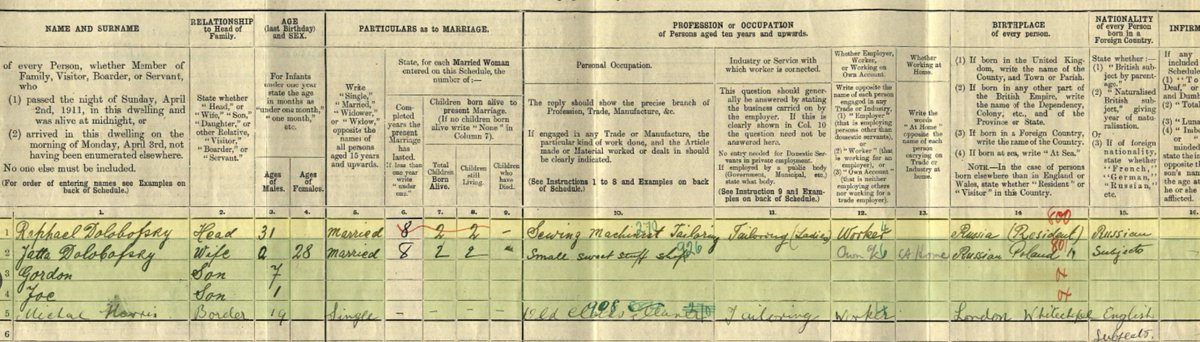 NAME AND SURNAME
of every Person, whether Member of
Family, Visitor, Boarder, or Servant,
who
(1) passed the night of Sunday, April
2nd, 1911, in this dwelling and
was alive at midnight, or
(2) arrived in this dwelling on the
morning of Monday, April 3rd, not
having been enumerated elsewhere.
No one else must be included.
(For order of entering names see Examples on
back of Schedule.)
RELATIONSHIP
to Head of
Family.
State whether
"Head," or
"Wife," "Son,"
"Daughter," or
other Relative,
"Visitor,"
"Boarder," or
"Servant."
AGE
(last Birthday)
and SEX.
For Infants
under one year
state the age
in months as
"under one month,"
"one month,"
etc.
Ages
of
Males.
Ages
of
Females.
PARTICULARS as to MARRIAGE.
Write
"Single,"
"Married,"
"Widower,"
or "Widow,"
opposite the
names of
all persons
aged 15 years
and upwards.
State, for each Married Woman
entered on this Schedule, the
number of:—
Com-
pleted
years the
present
Marriage
has
lasted.
If less than
one year
write
"under
one."
Children born alive to
present Marriage.
(If no children born
alive write "None" in
Column 7).
Total
Children
Born
Alive.
Children
still
Living.
Children
who
have
Died.
PROFESSION or OCCUPATION
of Persons aged ten years and upwards.
Personal Occupation.
The reply should show the precise branch of
Profession, Trade, Manufacture, &c.
If engaged in any Trade or Manufacture, the
particular kind of work done, and the Article
made or Material worked or dealt in should
be clearly indicated.
(See Instructions 1 to 8 and Examples on back
of Schedule.)
Industry or Service with
which worker is connected.
This question should gener-
ally be answered by stating
the business carried on by
the employer. If this is
clearly shown in Col. 10
the question need not be
answered here.
No entry needed for Domestic Ser-
vants in private employment.
If employed by a public body
(Government, Municipal, etc.)
state what body.
(See Instruction 9 and Exam-
ples on back of Schedule.)
Whether Employer,
Worker,
or Working on
Own Account.
Write opposite the
name of each person
engaged in any
Trade or Industry,
(1) "Employer"
(that is employing
persons other than
domestic servants),
or
(2) "Worker" (that
is working for an
employer), or
(3) "Own Account"
(that is neither
employing others nor
working for a
trade employer).
Whether
Working at
Home.
Write the
words
"At Home"
opposite the
name of each
person
carrying on
Trade or
Industry at
home.
BIRTHPLACE
of every person.
(1) If born in the United King-
dom, write the name of the
County, and Town or Parish.
(2) If born in any other part of
the British Empire, write
the name of the Dependency,
Colony, etc., and of the
Province or State.
(3) If born in a Foreign Country,
write the name of the Country.
(4) If born at sea, write "At Sea."
NOTE.—In the case of persons
born elsewhere than in England or
Wales, state whether "Resident" or
"Visitor" in this Country.
NATIONALITY
of every Person
born in a
Foreign Country.
State whether:—
(1) "British sub-
ject by parent-
age."
(2) "Naturalised
British sub-
ject," giving
year of natu-
ralisation.
Or
(3) If of foreign
nationality,
state whether
"French,"
"German,"
"Russian,"
etc.
INFIRM
If any
1. 2. 3. 4. 5. 6. 7. 8. 9. 10. 11. 12. 13. 14. 15. 16.
800
1 Raphael Dolobofsky Head 31 Married 8 2 2 – Sewing Machinist Tailoring Tailoring (Ladies) Worker Russia (Resident) Russian
2 Jatta Dolobofsky Wife 28 Married 8 2 2 Small sweet stuff shop Own At Home Russian Poland Subjects
3 Gordon Son 7
4 Joe Son 1
5 Michal Harris Border 19 Single – – – – Old Clothes Tailoring Worker London Whitechapel English
6 Subjects.